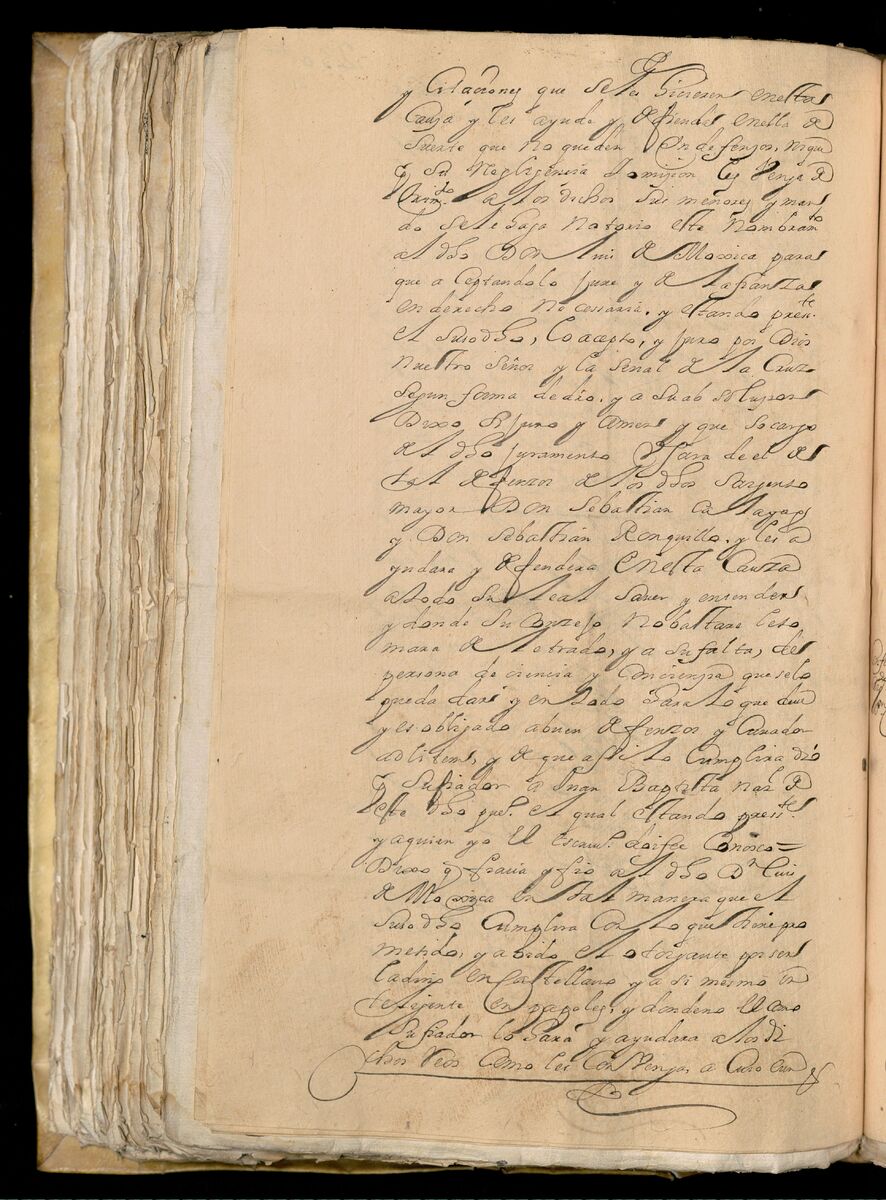 y Citaciones que se les hicieren en esta
Causa y les ayude y defienda en ella de
suerte que no queden Yndefensos, ni que
por su Negligencia U omision les Venga
a los dichos sus menores, y man
do se le haga notorio este nombram.to
al dho Don Luis de Moxica para
que aceptandolo jure y de la fianza
en derecho nesessaria, y estando press.te
el suso dho, lo acepto, y juro por Dios
nuestro Señor y la señal de la Cruz
segun forma de dro, y a su absolusion
Dixo si juro y amen, y que so cargo
del dho juramento Usara de el de
tal defenzor de los dhos Sargento
mayor Don Sebastian
y Don Sebastian Ronquillo, y les a
yudara y defendera en esta Cauza
a todo su leal saver y entender
y donde su Conzejo no bastare lo to
mara de letrado, y a su falta, de
persona de ciencia y Conciencia que se lo
pueda dar, y en todo hara lo que deve
y es obligado a buen defenzor y Curador
ad litem, y de que assi lo Cumplira dio
por su fiador a Juan Baptista
este dho el qual estando press.te
y a quien yo el Escriv.o doi fee Conosco =
Dixo q fiava y fio al dho D.n Luis
de Moxica en tal manera que el
suso dho Cumplira Con lo que tiene pro
metido, y a sido el otorgante por ser
ladino en Castellano y a si mismo in
teligente en papeles, y donde no el como
su fiador lo hará y ayudara a los di
chos Reos Como les Convenga, a Cuio Cum